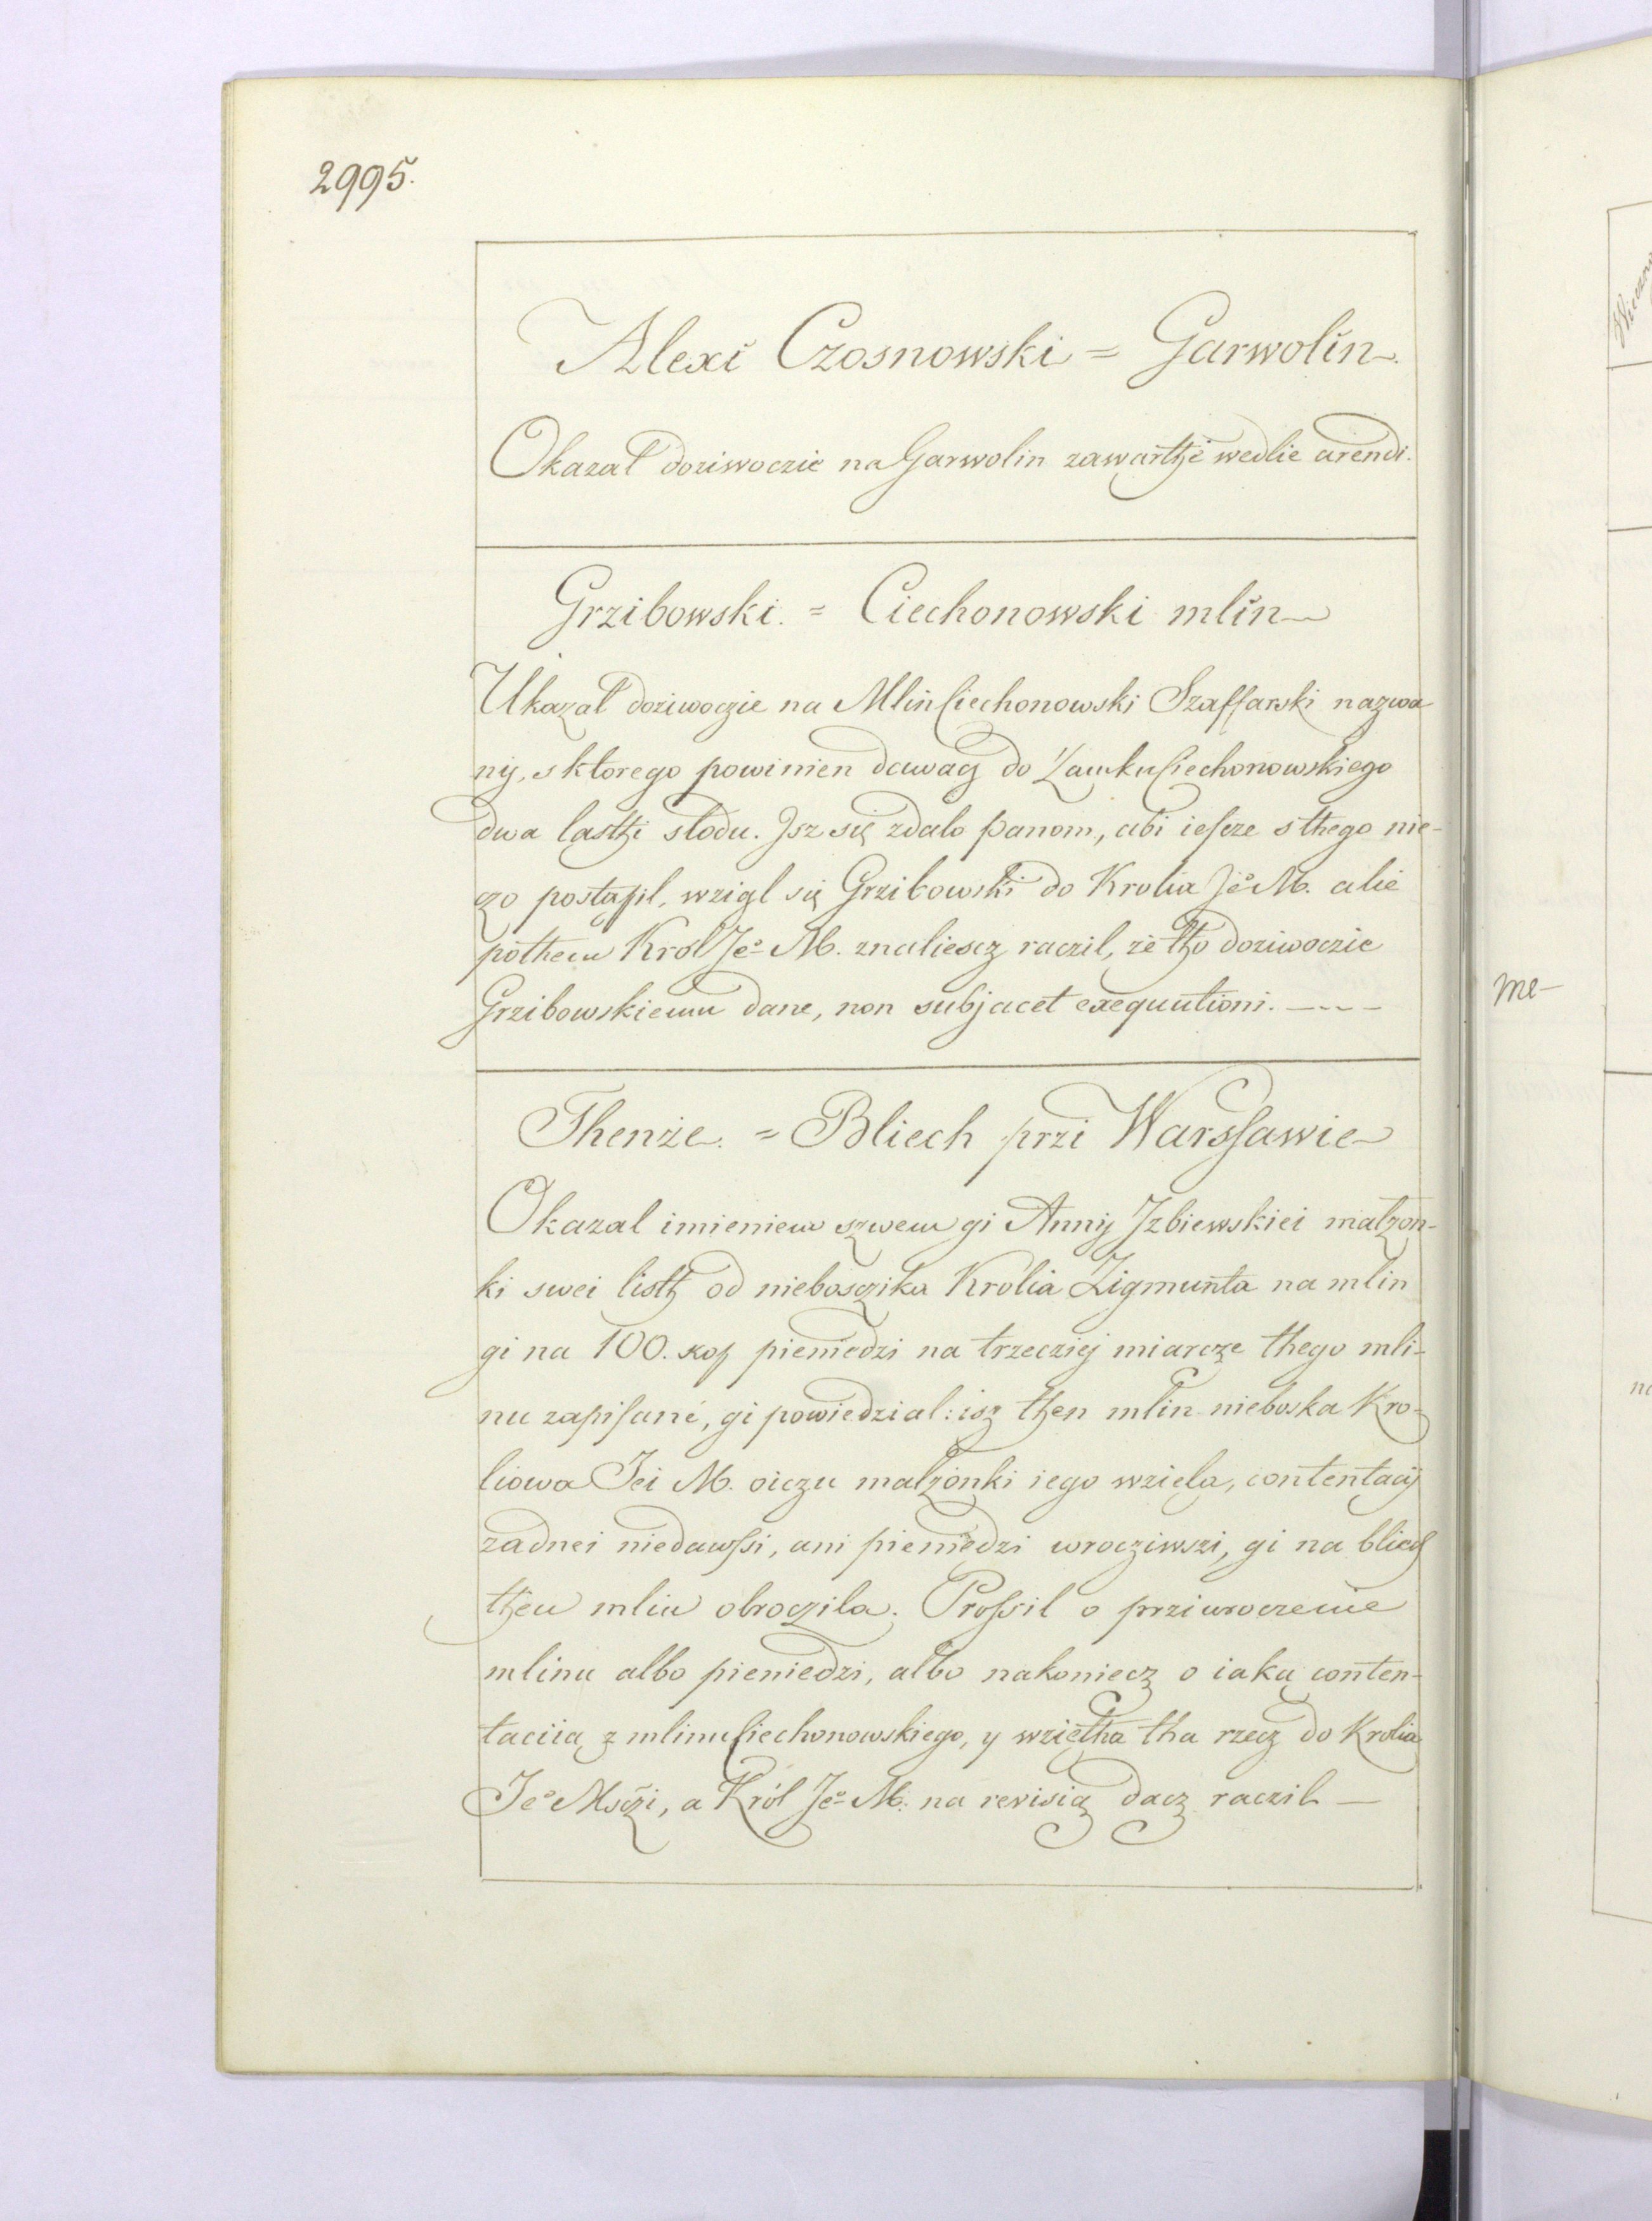 2995.
Alexi Czosnowski = Garwolin.
Okazał doziwoczie na Garwolin zawartħe wedlie arendi.
Grzibowski. = Ciechonowski mlin
Ukazał doziwoczie na Mlin Ciechonowski Szaffarski nazwa
ny, s ktorego powinien dawacz do Zamku Ciechonowskiego
dwa lasthi słodu. Jsz się zdalo panom, abi iescze s thego nie-
czo postąpil, wzigl się Grzibowski do Krolia Jeº M. alie
pothem Krol Jeº M. znaliescz raczil, że tho doziwoczie
Grzibowskiemu dane, non subjacet exequutioni. ----
Thenże. = Bliech przi Warssawie
Okazal imieniem szwem gi Anny Jzbiewskiei małzon-
ki swei listh od nieboszika Krolia Zigmunta na mlin
gi na 100. kop pieniedzi na trzecziej miarcze thego mli-
nu zapisané, gi powiedzial: isz then mlin nieboska Kro-
liowa Jei M. oiczu malzonki iego wziela, contentacij
zadnei niedawssi, ani pieniędzi wrocziwszi, gi na bliech
then mlin obroczila. Prossil o prziwroczenie
mlinu albo pieniedzi, albo nakoniecz o iaką conten-
taciią z mlinu Ciechonowskiego, y wziętha tha rzecz do Krolia
Jeº Msczi, a Król Jeº M. na revisią dacz raczil —
me-